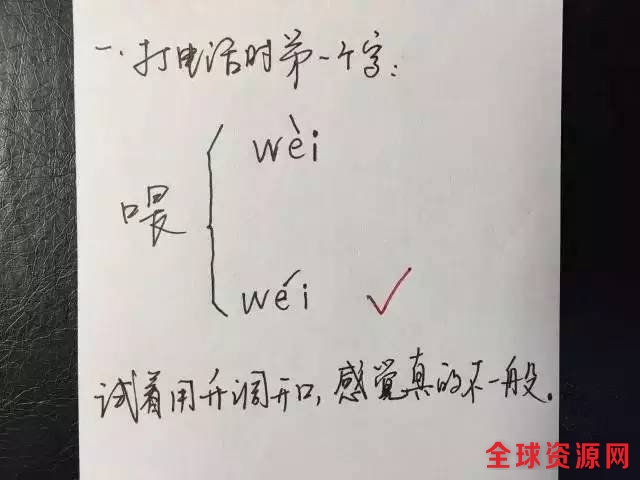 一.打电话时第一个字:
wèi
喂
wéi ✓
试着用升调开口,感觉真的不一般。
全球资源网